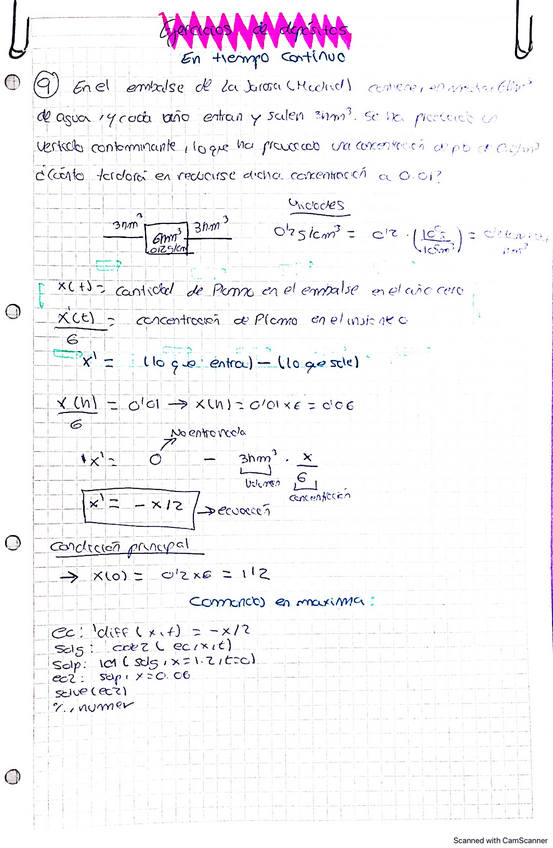 Ejercicios de depósitos
En tiempo continuo
9 En el embalse de La Jarosa (Madrid) contiene,
de agua, y cada año entran y salen 3hm³. Se ha producido un
vertido contaminante, lo que ha provocado una concentración de pb de
¿Cuánto tardará en reducirse dicha concentración a 0.01?
Unidades
3hm³ 3hm³
6hm³
0'2 · =
x(t) = cantidad de Plomo en el embalse en el año cero
x(t)/6 = concentración de Plomo en el
x' = (lo que entra) - (lo que sale)
x(n)/6 = 0'01 → x(n) = 0'01 x 6 = 0'06
No entra nada
x' = 0 - 3hm³ · x/6
Volumen
concentración
x' = -x/2 → ecuación
Condición principal
→ x(0) = 0'2 x 6 = 1'2
Comandos en maxima:
ec: 'diff(x,t) = -x/2
solg: ode2(ec,x,t)
solp: ic1(solg,x=1.2,t=0)
ec2: solp, x=0.06
solve(ec2)
%, numer
Scanned with CamScanner